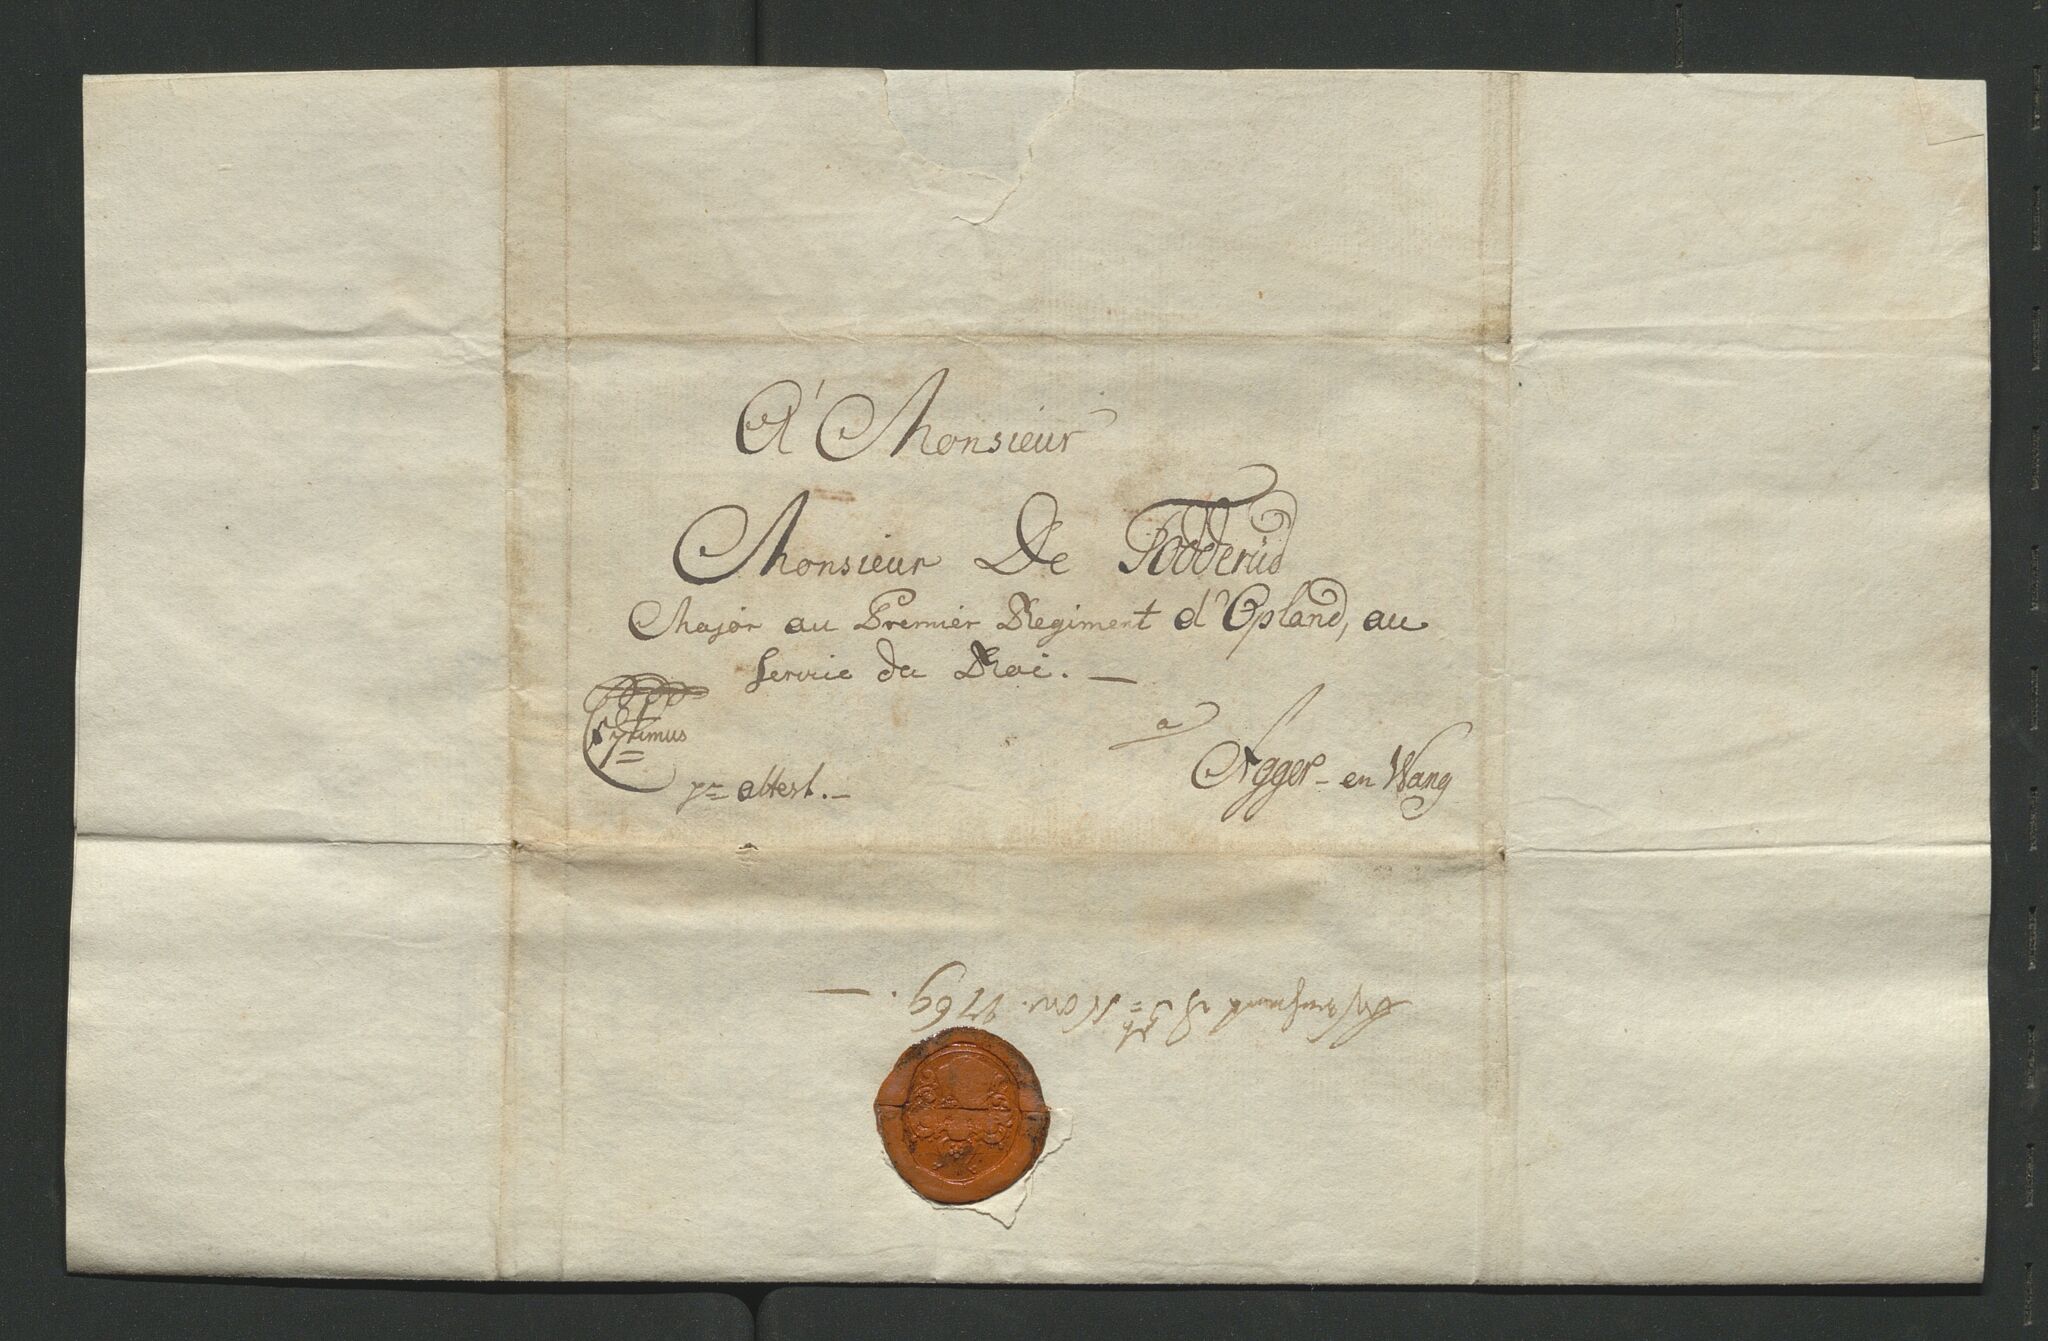 A' Monsieur
Monsieur De Fodderud
Major au Premier Regiment d'Opland, au
servic du Roi. —
Citissimus
pr attest. —
a
Agger - en Wang
d 3th Nov. 1769. —